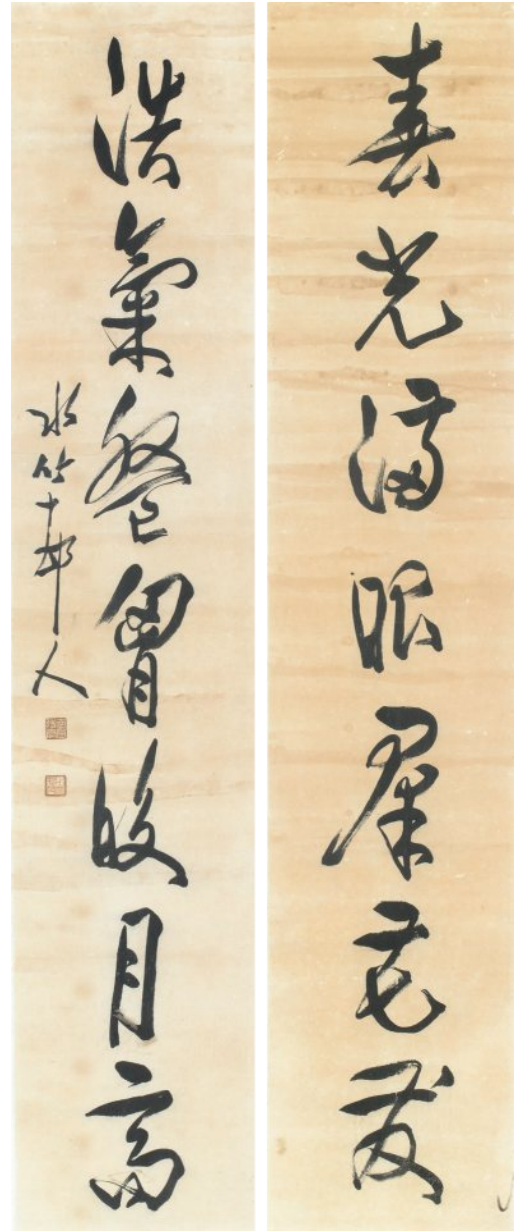 春光滿眼羣花發
浩氣盤胷皎月高
水竹邨人